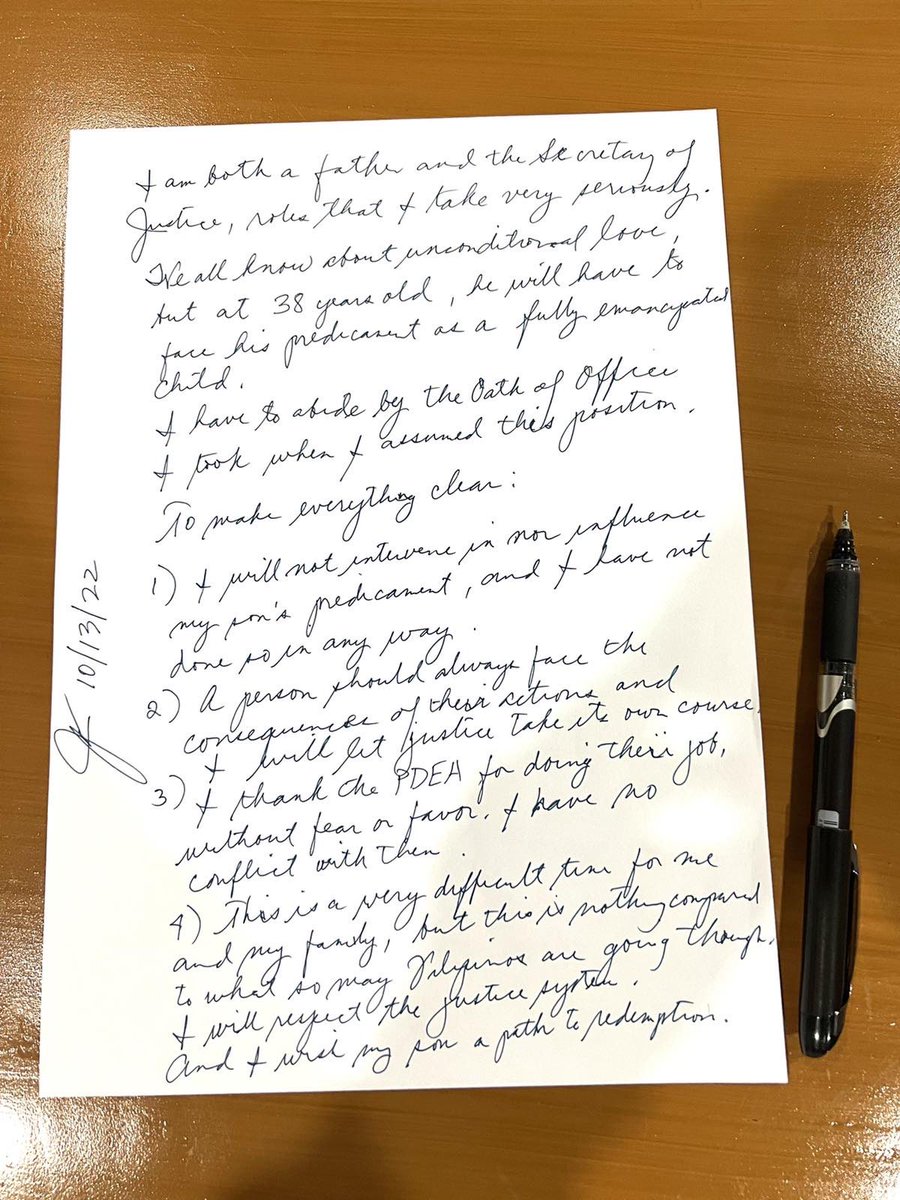 I am both a father and the Secretary of
Justice, roles that I take very seriously.
We all know about unconditional love,
but at 38 years old, he will have to
face his predicament as a fully emancipated
child.
I have to abide by the Oath of Office
I took when I assumed this position.
To make everything clear:
1) I will not intervene in nor influence
my son's predicament, and I have not
done so in any way.
2) A person should always face the
consequences of their actions and
I will let justice take its own course.
3) I thank the PDEA for doing their job,
without fear or favor. I have no
conflict with them.
4) This is a very difficult time for me
and my family, but this is nothing compared
to what so may Filipinos are going though.
I will respect the justice system.
And I wish my son a path to redemption.
10/13/22